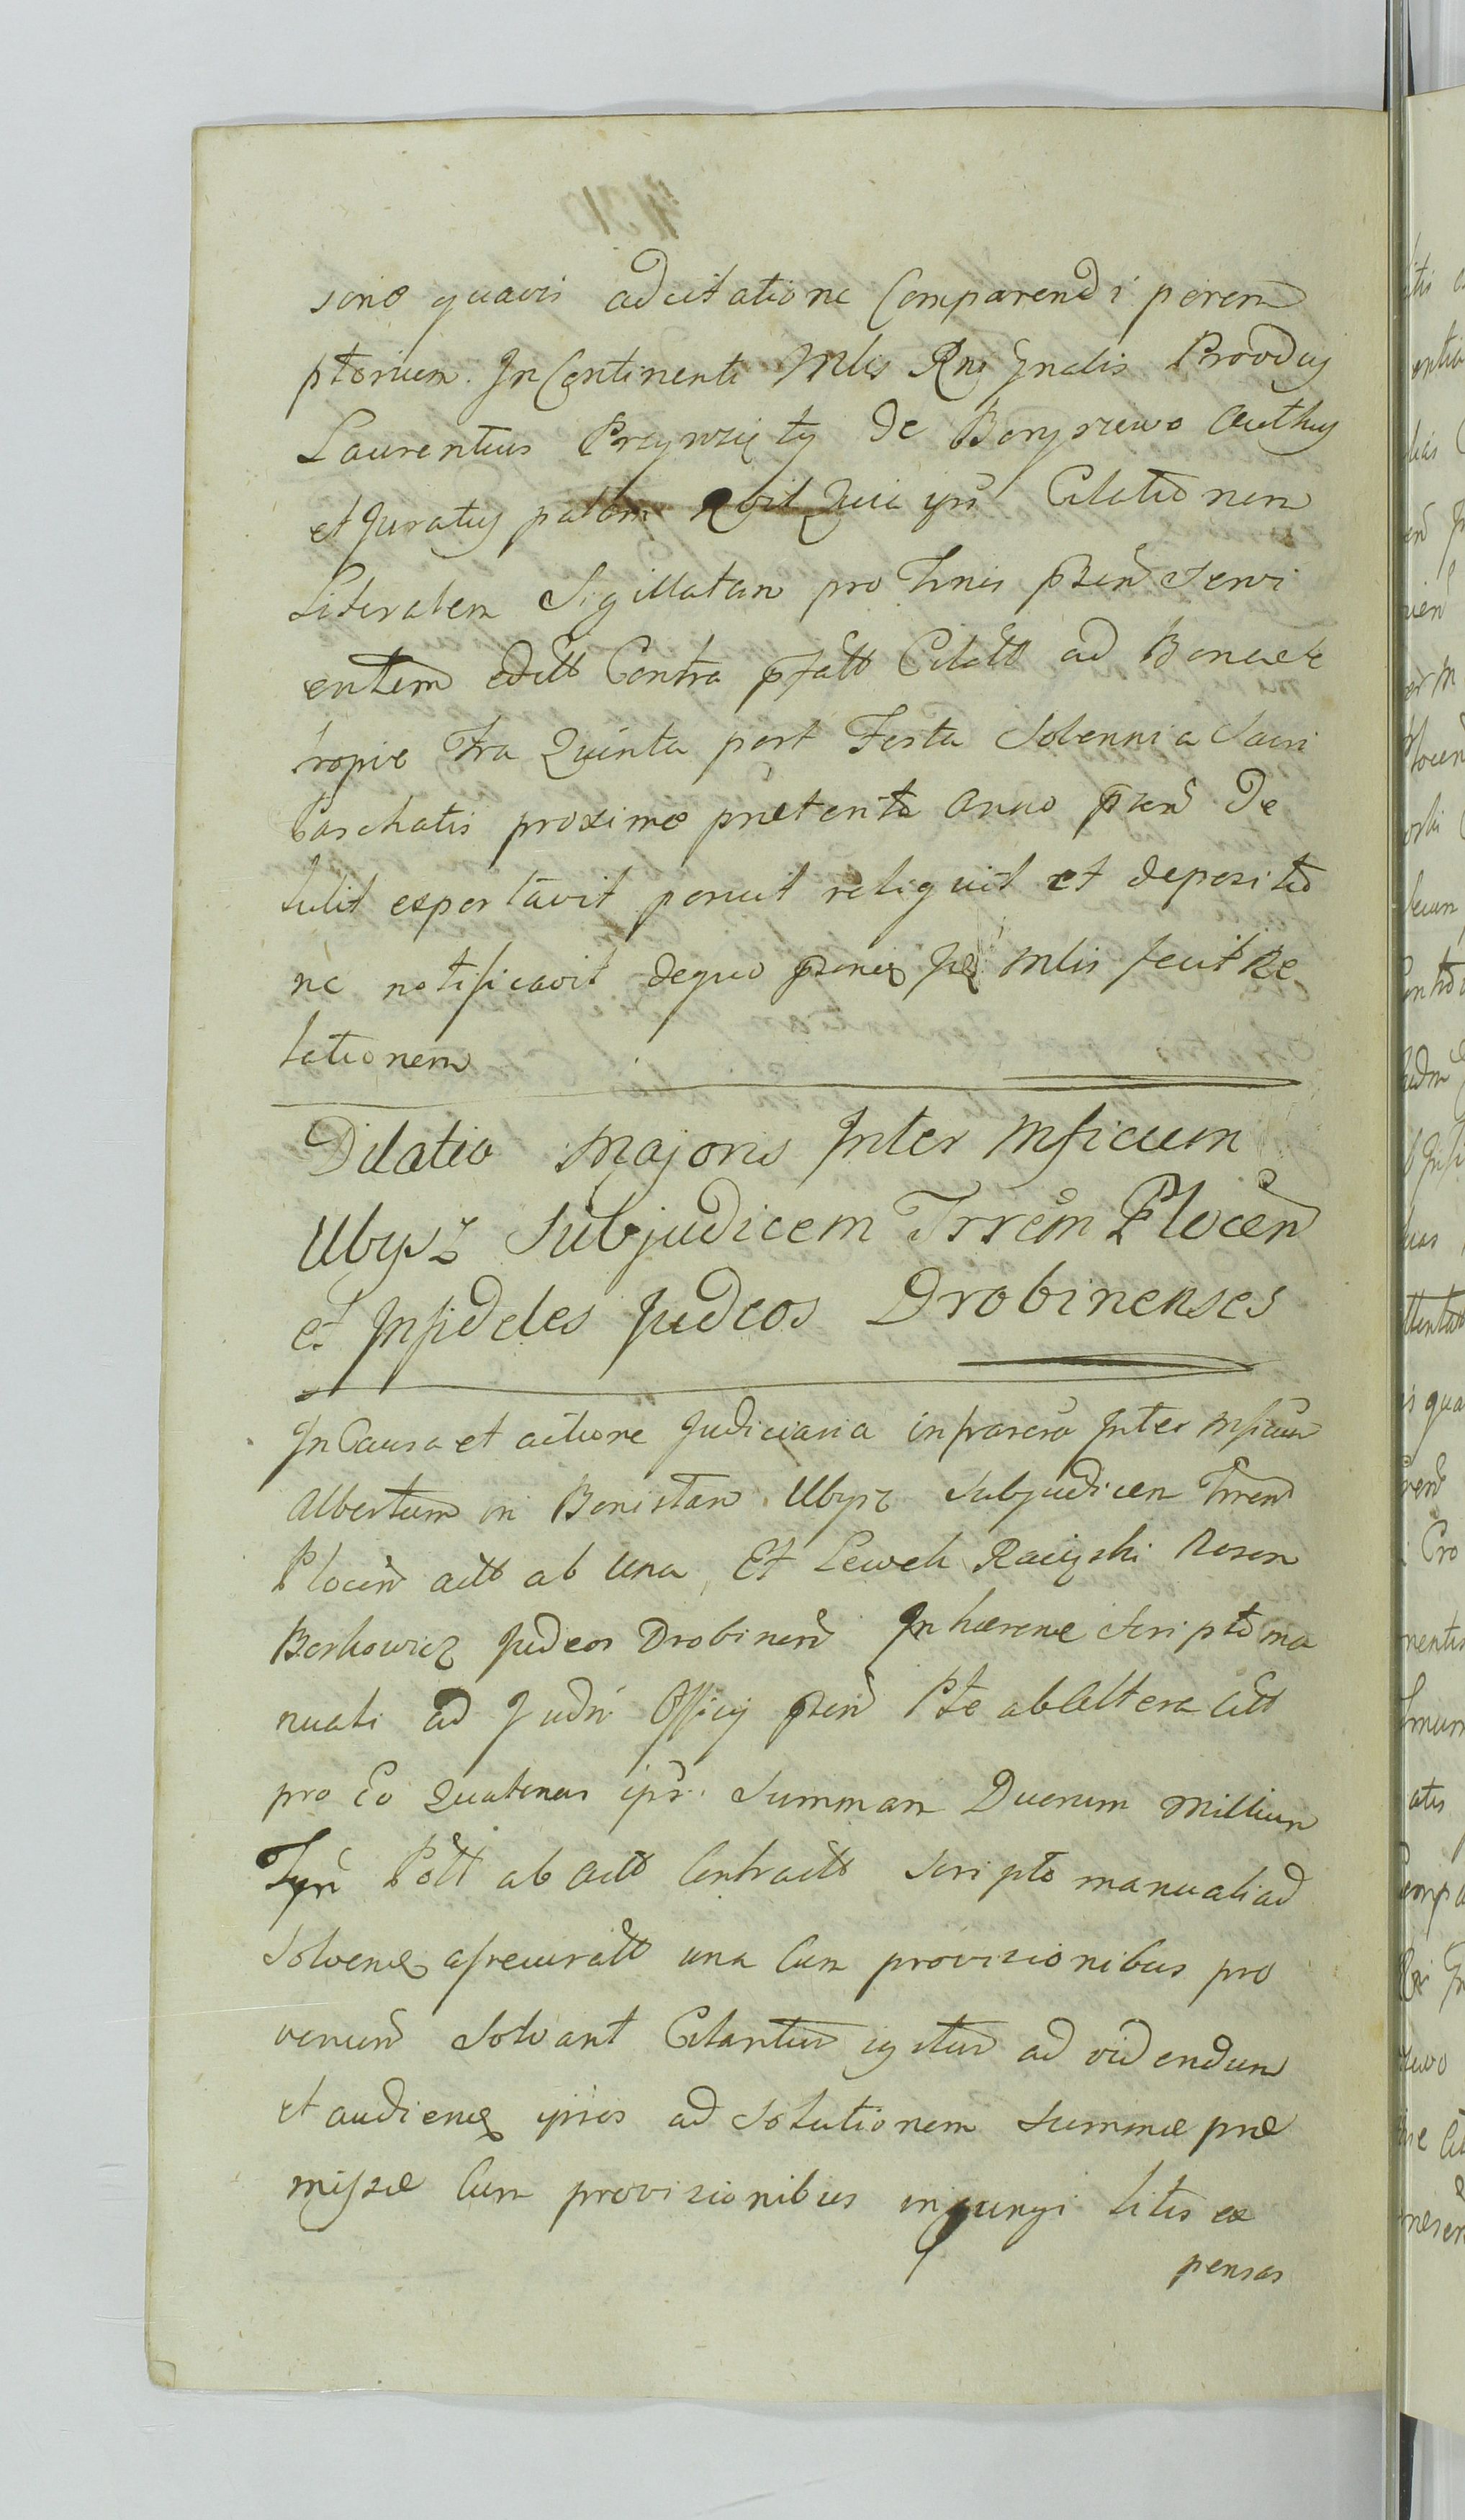 sine quavis adcitatione Comparendi perem
ptorium. In Continenti Mlis Rni Gnalis Provdus
Laurentius Przywzięty de Boryszewo Authus
et Juratus palam Rvit Quia ips Citationem
Literalem Sigillatam pro Tmis pnn Servi
entem editt Contra pfatt Citatt ad Bona et
tropie Fra Quinta post Festa Solennia Sacri
Paschatis proxime prætento Anno pnn De
tulit exportavit posuit reliquit et depositio
ne notificavit dequo Mlis fecit Re
lationem
Dilatio Majoris Inter Mficum
Ubysz Subjudicem Trrem Plocen
et Infideles Judeos Drobinenses
In Causa et actione Judiciaria infrascra Inter Mficum
Albertum in Bonistan Ubysz Subjudicem Trren
Plocen actt ab una, Et Lewek Raciąski Rosen
Berkowicz Judeos Drobinen Inhærene Scripto ma
nuali ad Judn Officy pnn Pte ab Altera Citt
pro Eo Quatenus ips. Summam Duorum Millium
Tyn Poll ab actt Contractt Scripto manuali ad
Solvend assecuratt una Cum provisionibus pro
venien Solvant Citantur igitur ad videndum
et audiend ipsos ad Solutionem Summæ præ
missæ Cum provisionibus injungi litis ex
pensas